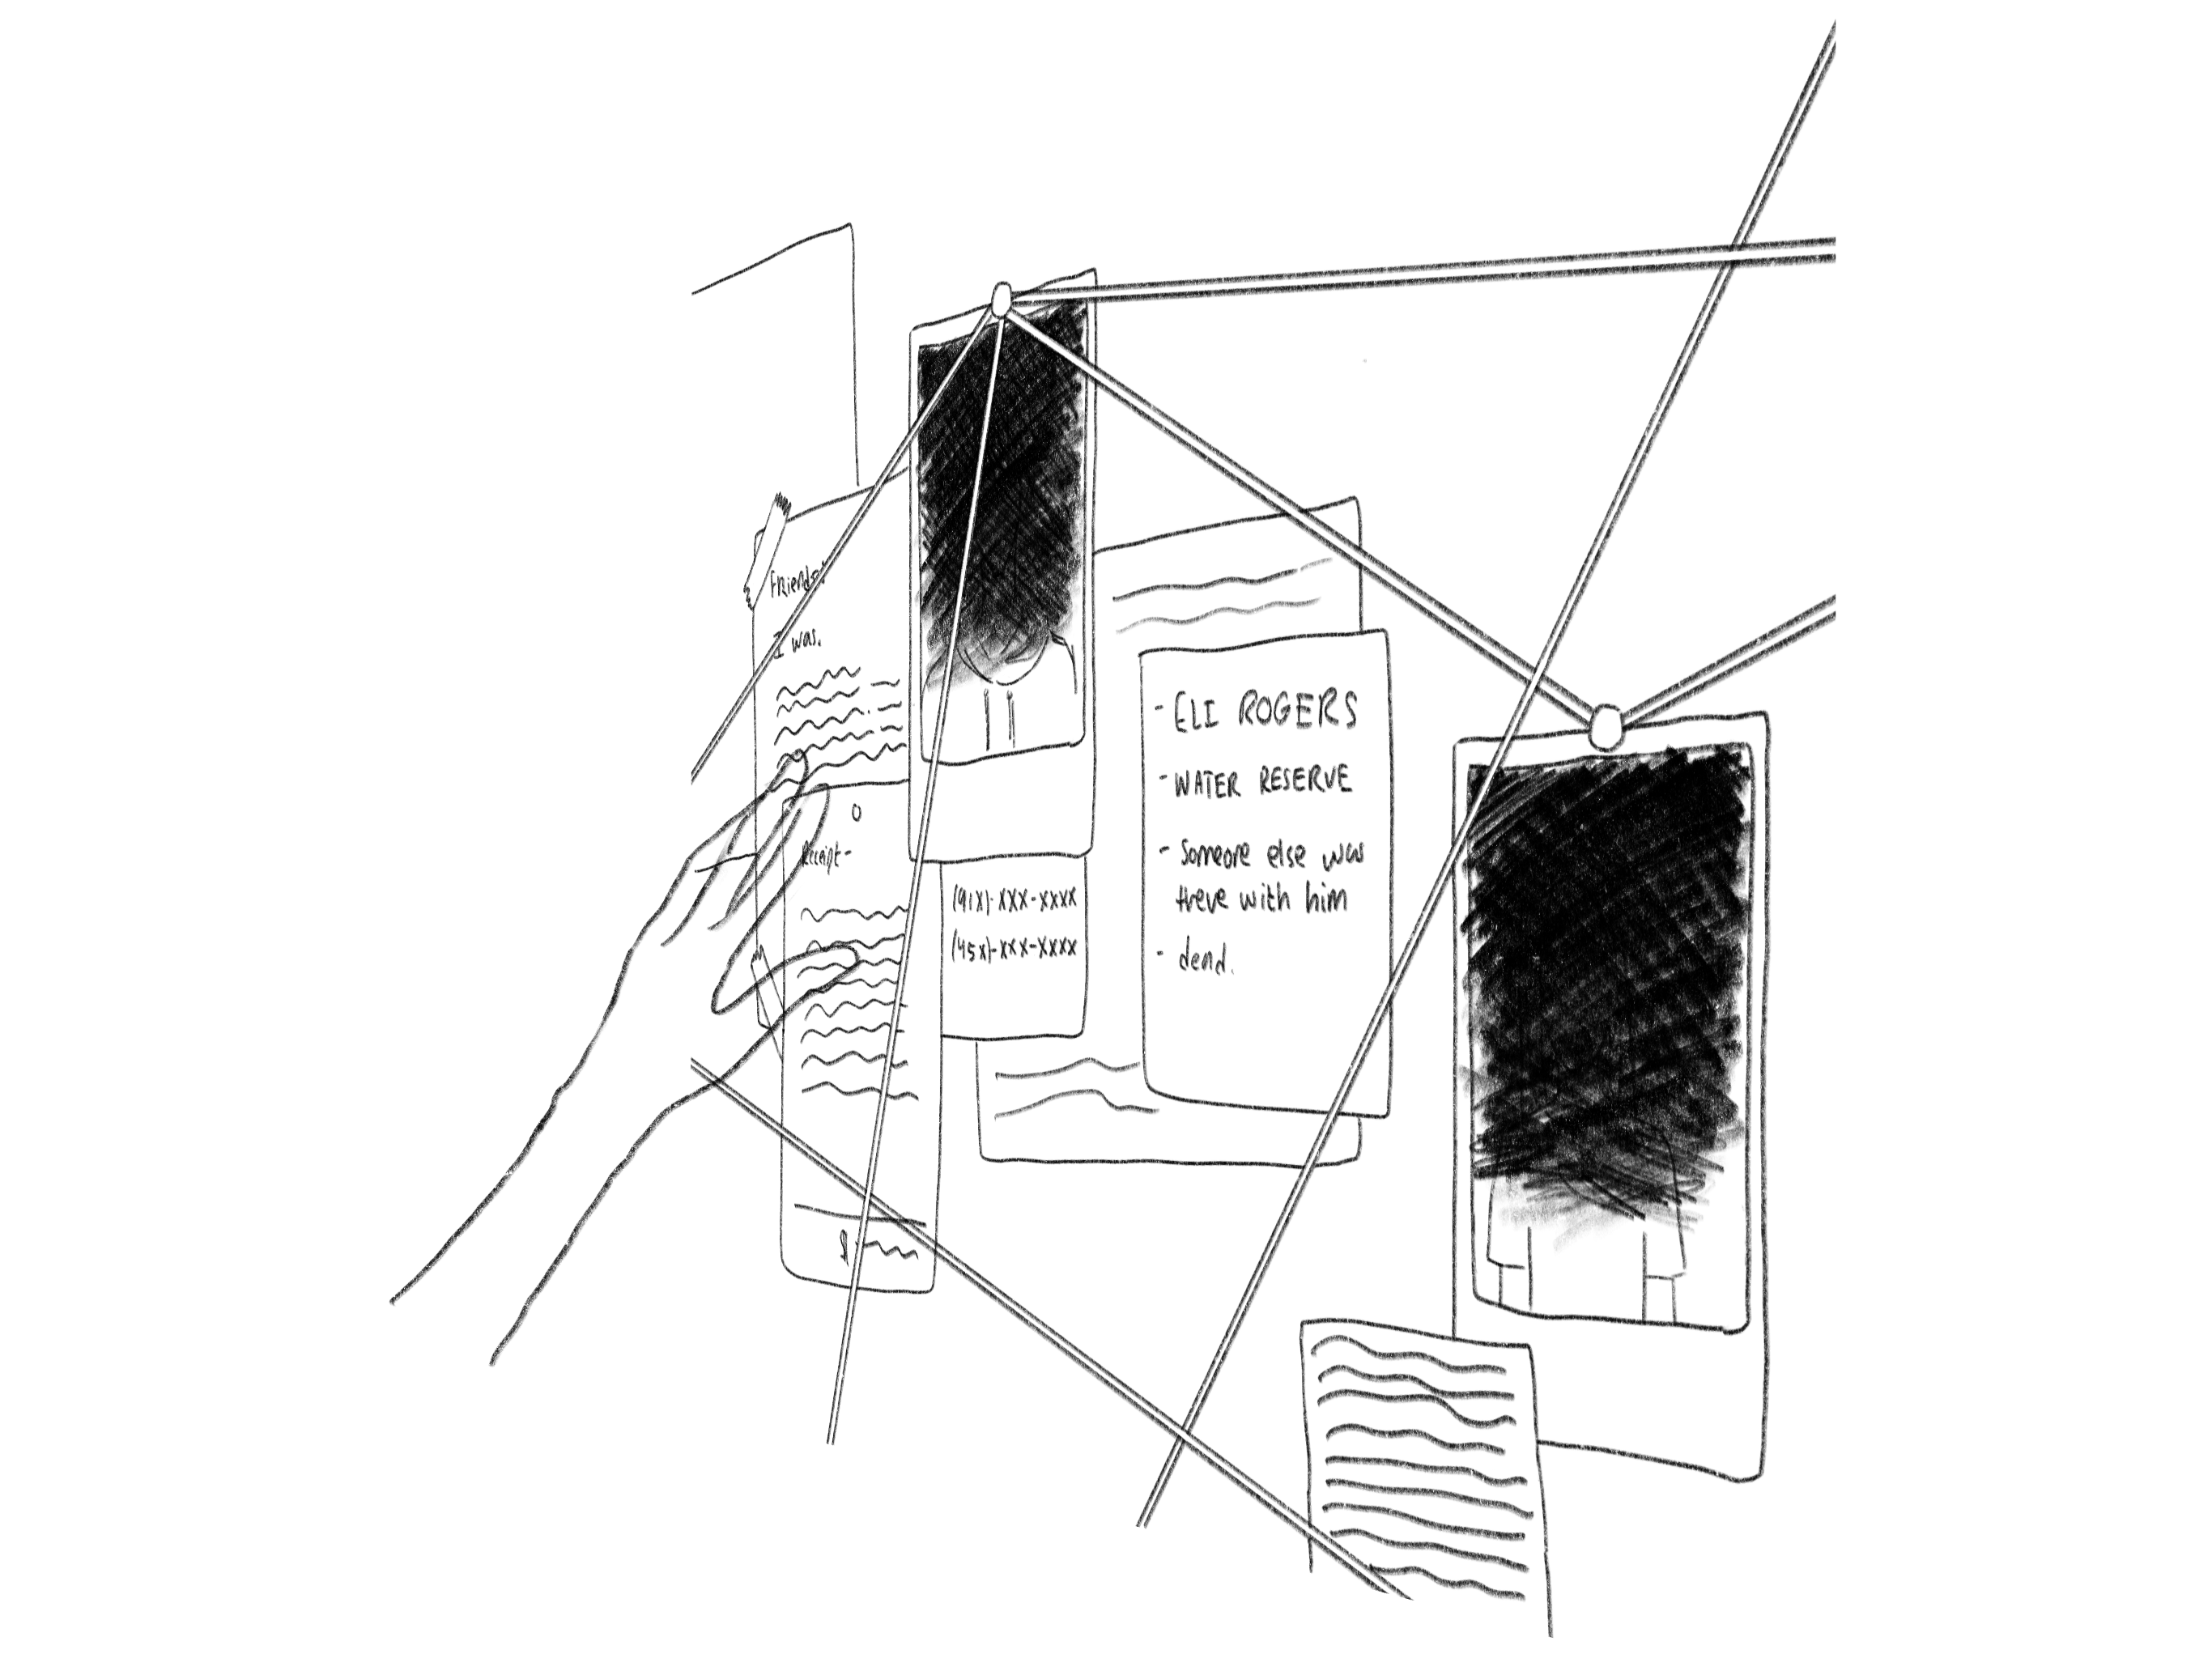 Friends!
I was.
Receipt-
$
(91X)-XXX-XXXX
(45X)-XXX-XXXX
- ELI ROGERS
- WATER RESERVE
- Someone else was
there with him
- dead.